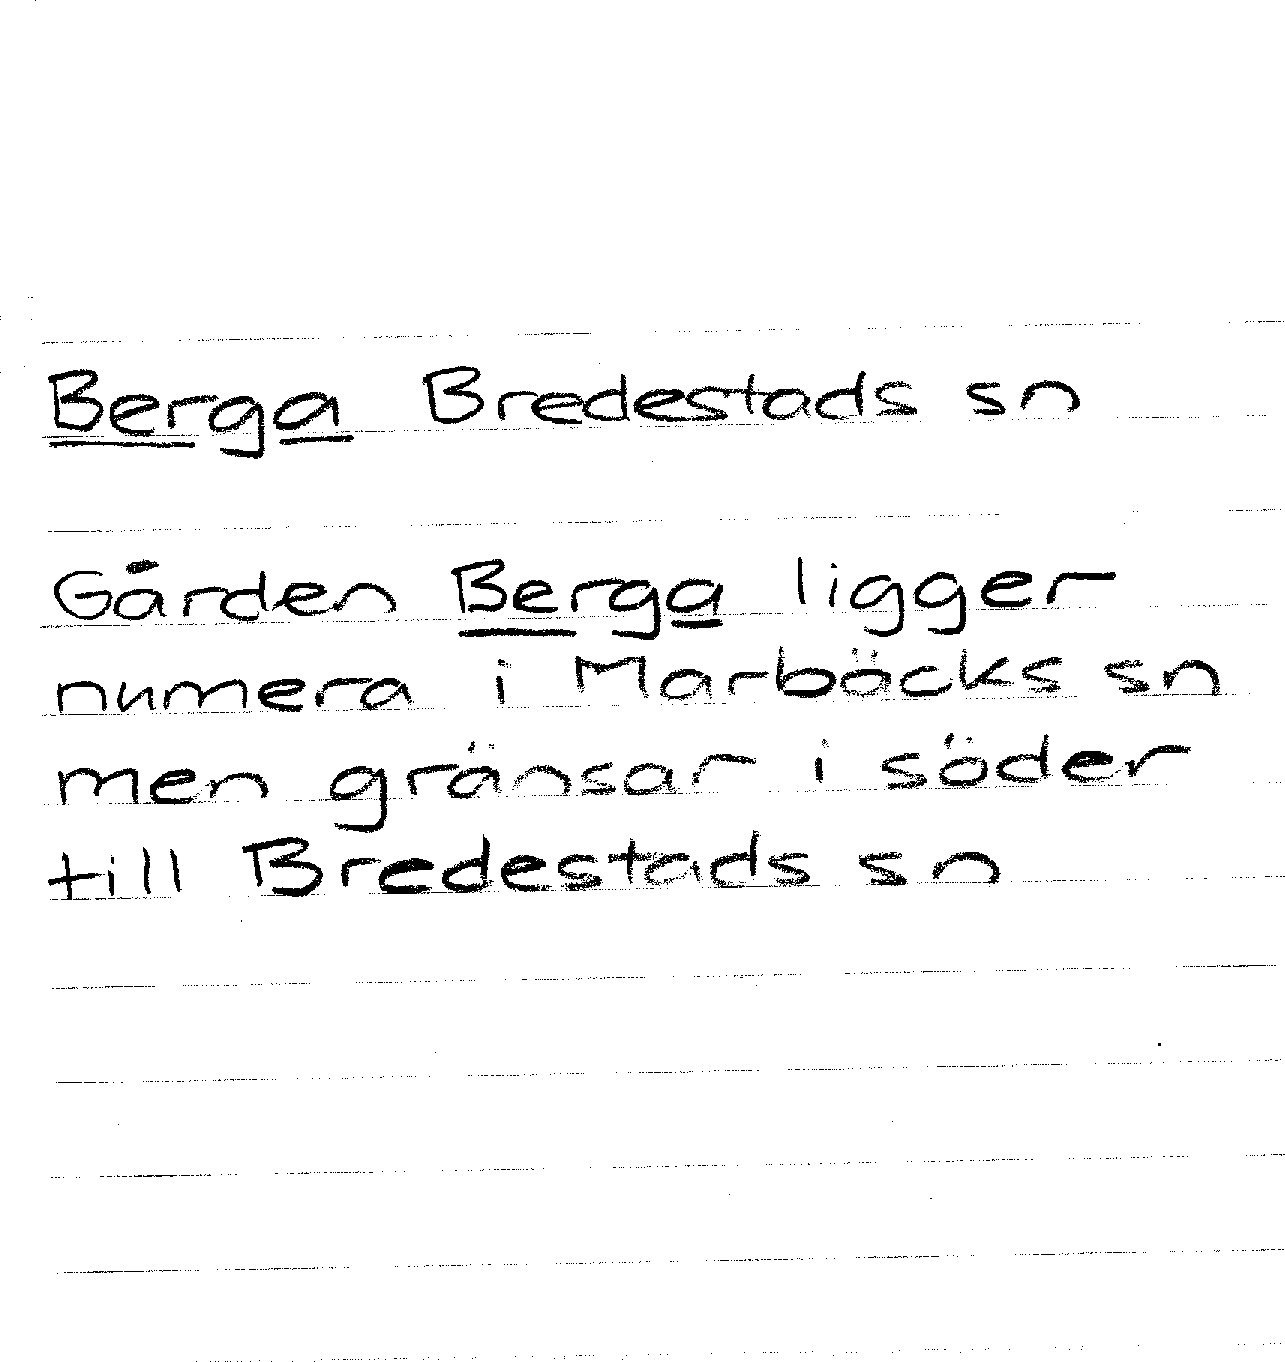 Berga Bredestads sn
Gården Berga ligger
numera i Marbäcks sn
men gränsar i söder
till Bredestads sn